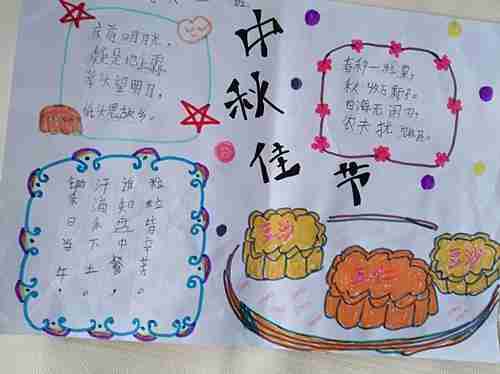 班
床前明月光，
疑是地上霜，
举头望明月，
低头思故乡。
中秋佳节
春种一粒粟，
秋收万颗子。
四海无闲田，
农夫犹饿死。
锄禾日当午。
汗滴禾下土。
谁知盘中餐，
粒粒皆辛苦。
豆沙
五仁
豆沙